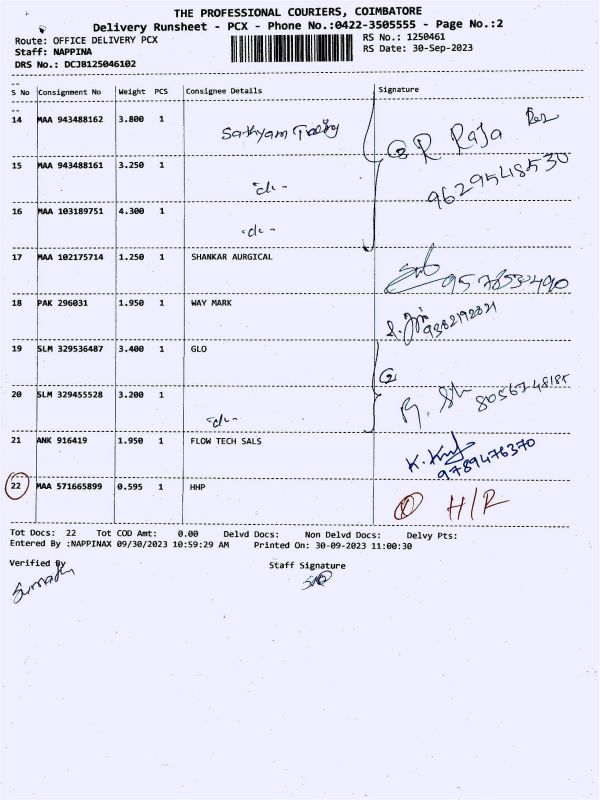 THE PROFESSIONAL COURIERS, COIMBATORE
Delivery Runsheet - PCX - Phone No.:0422-3505555 - Page No.:2
Route: OFFICE DELIVERY PCX RS No.: 1250461
Staff: NAPPINA RS Date: 30-Sep-2023
DRS No.: DCJB125046102
S No Consignment No Weight PCS Consignee Details Signature
14 MAA 943488162 3.800 1 Sathyam Trading R Raja
15 MAA 943488161 3.250 1 -do- 9629548530
16 MAA 103189751 4.300 1 -do-
17 MAA 102175714 1.250 1 SHANKAR AURGICAL
18 PAK 296031 1.950 1 WAY MARK 9382192821
19 SLM 329536487 3.400 1 GLO 2
20 SLM 329455528 3.200 1 -do- 8056748185
21 ANK 916419 1.950 1 FLOW TECH SALS 9789476370
22 MAA 571665899 0.595 1 HHP H/R
Tot Docs: 22 Tot COD Amt: 0.00 Delvd Docs: Non Delvd Docs: Delvy Pts:
Entered By :NAPPINAX 09/30/2023 10:59:29 AM Printed On: 30-09-2023 11:00:30
Verified By Staff Signature